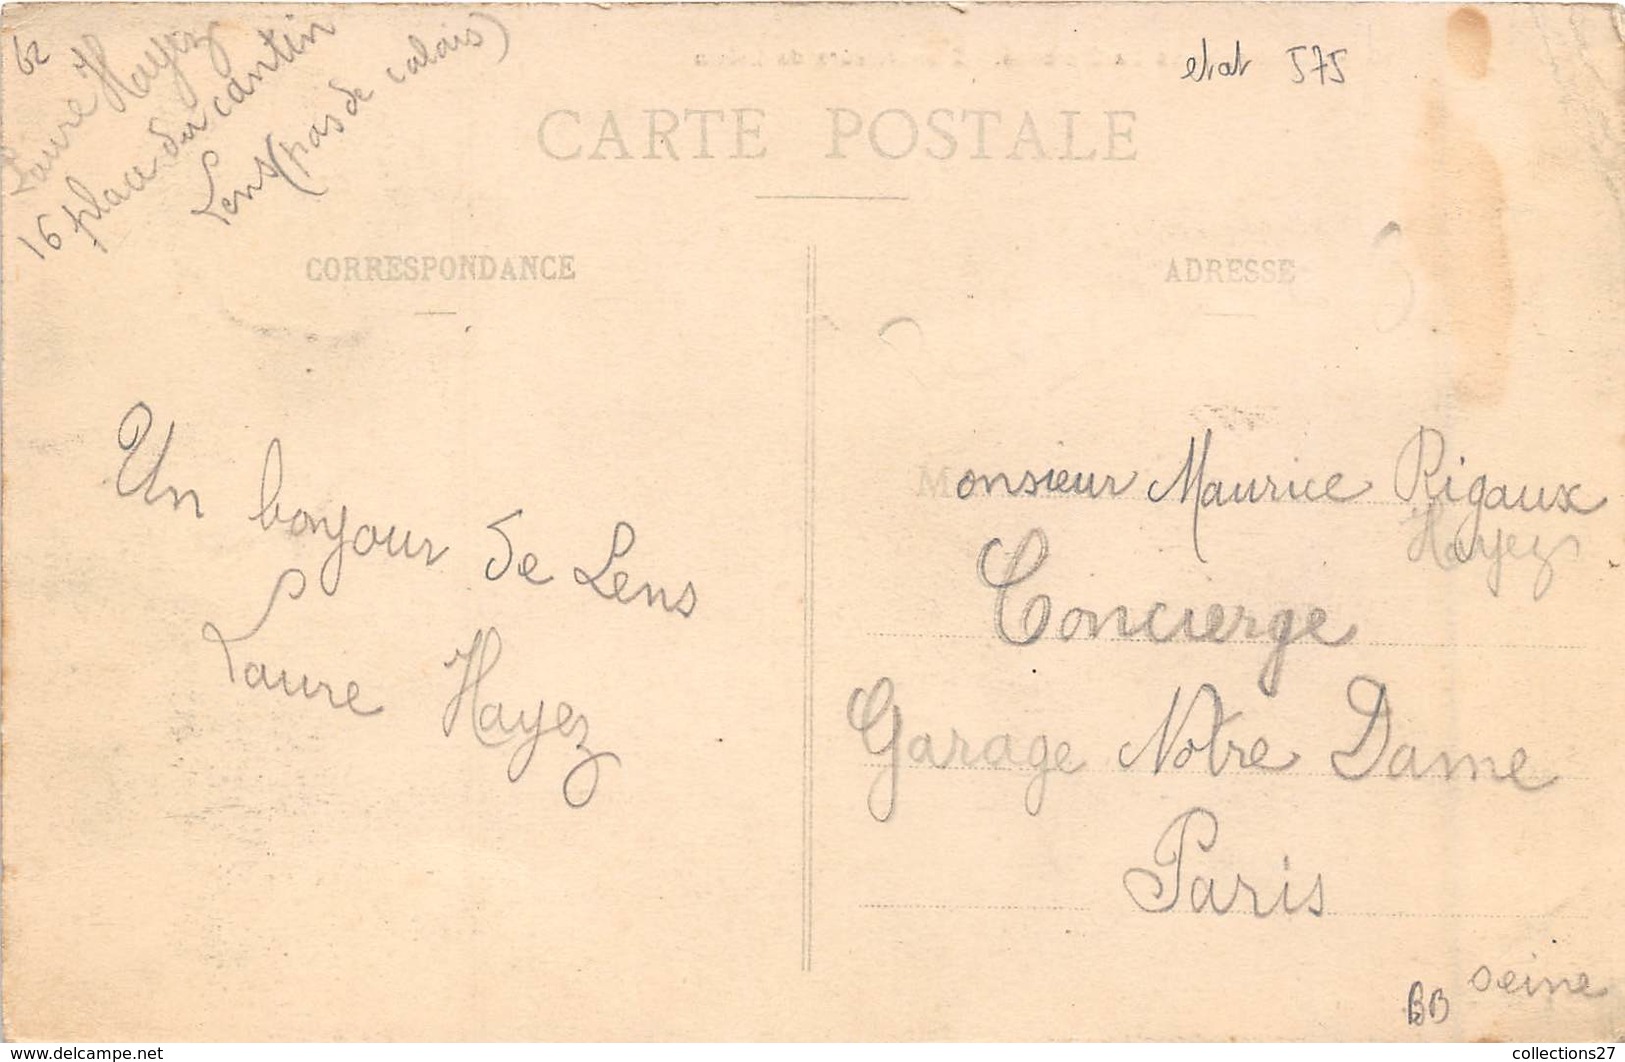 62
Laure Hayez
16 place du cantin
Lens (pas de calais)
etat 575
CARTE POSTALE
CORRESPONDANCE
ADRESSE
Un bonjour de Lens
Laure Hayez
Monsieur Maurice Rigaux
Hayez
Concierge
Garage Notre Dame
Paris
seine
BB
www.delcampe.net
collections27